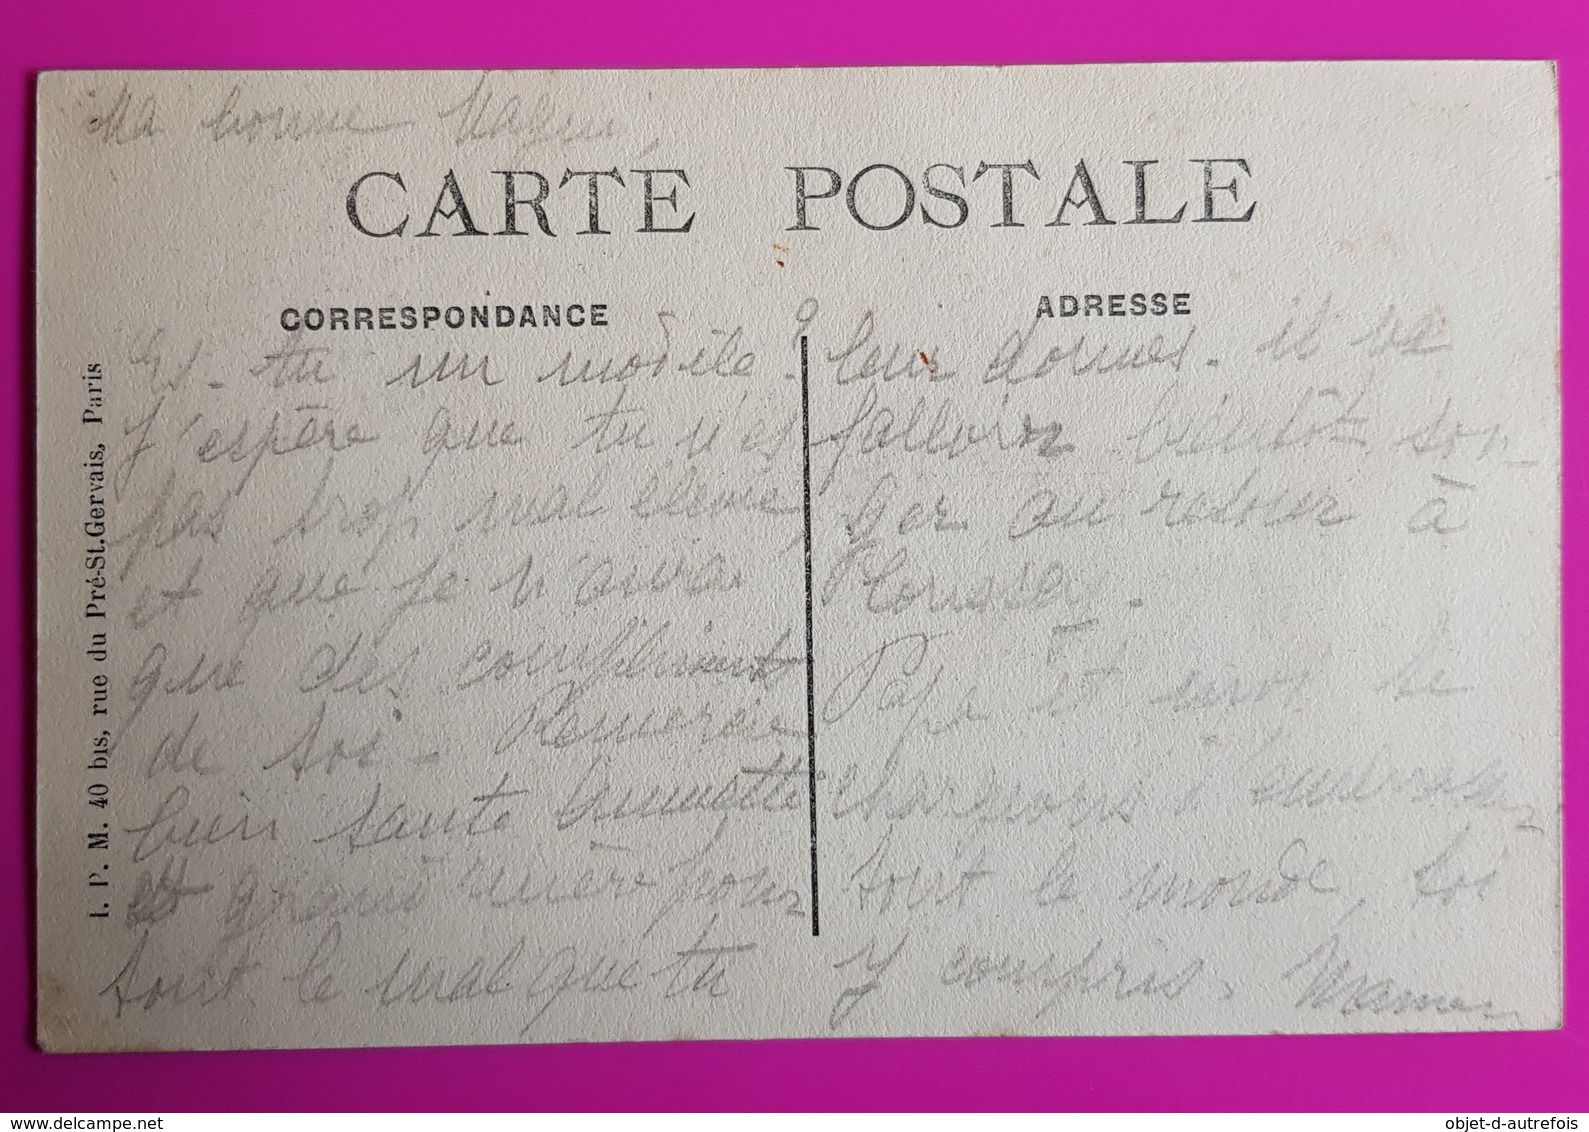 Ma bonne
CARTE POSTALE
CORRESPONDANCE
Es-tu un modèle ?
J'espère que tu n'es
pas trop mal élevée,
et que je n'aurai
que des compliments
de toi - Remercie
bien tante
et grand'mère pour
tout le mal que tu
ADRESSE
leur donnes. il va
falloir bientôt son-
ger au retour à
Papa et moi te
chargeons d'embrasser
tout le monde, toi
y compris. Maman
I. P. M. 40 bis, rue du Pré-St.Gervais, Paris
www.delcampe.net
objet-d-autrefois